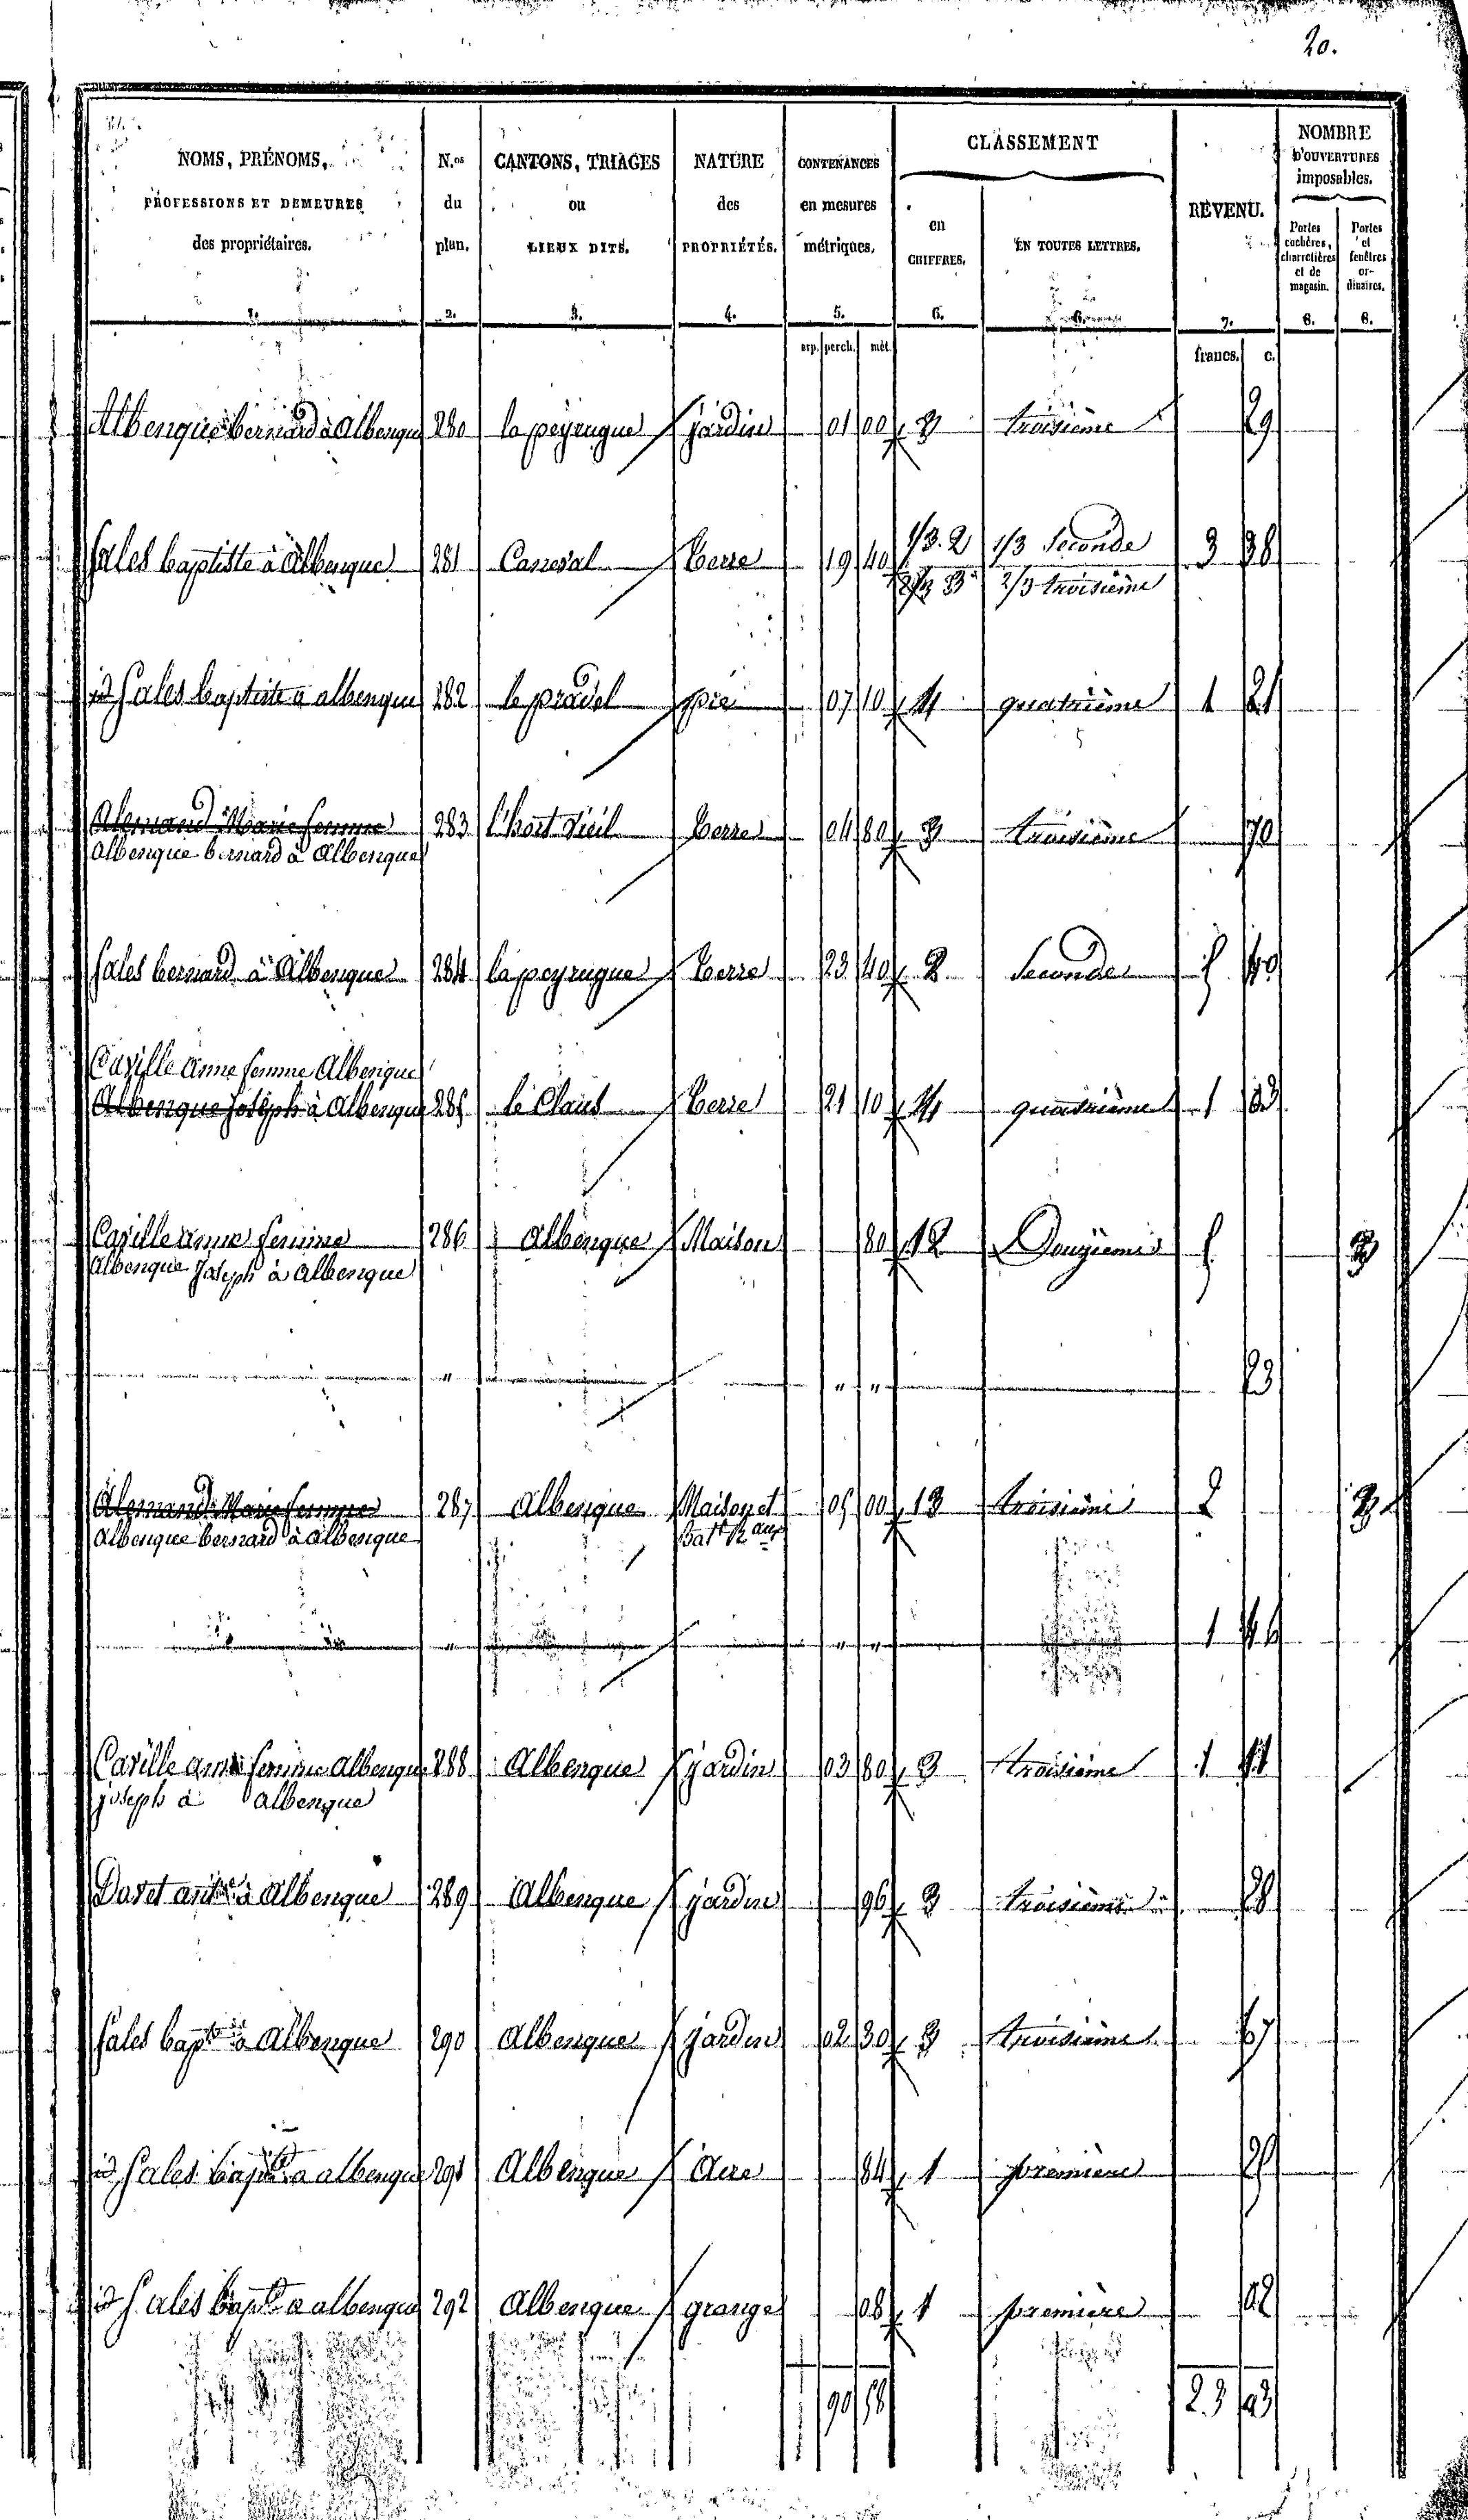 20.
NOMS, PRÉNOMS,
PROFESSIONS ET DEMEURES
des propriétaires.
1.
N.os
du
plan.
2.
CANTONS, TRIAGES
ou
LIEUX DITS.
3.
NATURE
des
PROPRIÉTÉS.
4.
CONTENANCES
en mesures
métriques.
5.
CLASSEMENT
en
CHIFFRES.
6.
EN TOUTES LETTRES.
REVENU.
7.
NOMBRE
D'OUVERTURES
imposables.
Portes
cochères,
charretières
et de
magasin.
8.
Portes
et
fenêtres
or-
dinaires.
8.
arp. perch. mèt. francs. c.
Albenque bernard à Albenque 280 la peyrugue jardin 01 00 3 troisième 29
Sales baptiste à Albenque 281 terre 19 40 1/3. 2 1/3 Seconde 3 38
2/3 3 2/3 troisième
id Sales baptiste à albenque 282 le pradel pré 07 10 4 quatrième 1 21
Alemand Marie femme 283 l'hort Vieil terre 04 80 3 troisième 70
Albenque bernard à Albenque
Sales bernard à Albenque 284 la peyrugue terre 23 40 2 Seconde 40
Caville Anne femme Albenque
Albenque Joseph à Albenque 285 le Claus terre 21 10 4 quatrième 1
Caville anne femme 286 Albenque Maison 80 12 Douzième 3
Albenque Joseph à Albenque
" " " 23
Alemand Marie femme 287 Albenque Maison et 05 00 13 troisième 2 3
Albenque bernard à Albenque Bat
" " " 1 46
Caville anne femme Albenque 288 Albenque jardin 03 80 3 troisième 1 11
joseph à albenque
à Albenque 289 Albenque jardin 96 3 troisième 28
Sales bapte à Albenque 290 Albenque jardin 02 30 3 troisième 67
id Sales bapte à albenque 291 Albenque Aire 84 1 première
id Sales bapte à albenque 292 Albenque grange 08 1 première 02
90 58 23